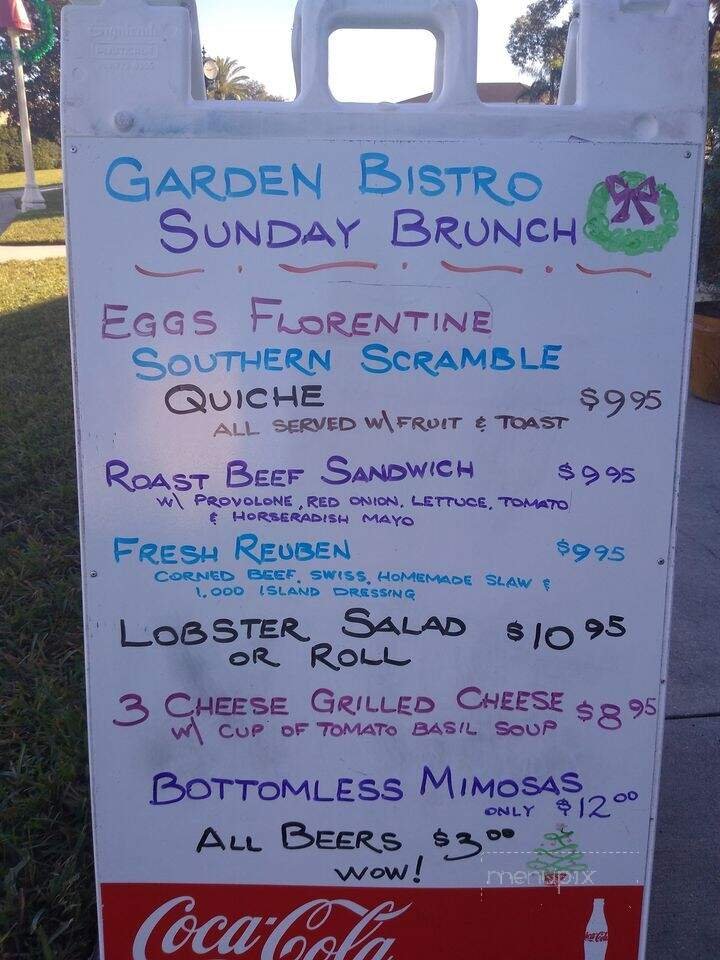 GARDEN BISTRO
SUNDAY BRUNCH
EGGS FLORENTINE
SOUTHERN SCRAMBLE
QUICHE $9 95
ALL SERVED W\ FRUIT & TOAST
ROAST BEEF SANDWICH $9 95
W\ PROVOLONE, RED ONION, LETTUCE, TOMATO
& HORSERADISH MAYO
FRESH REUBEN $9 95
CORNED BEEF, SWISS, HOMEMADE SLAW &
1,000 ISLAND DRESSING
LOBSTER SALAD $10 95
OR ROLL
3 CHEESE GRILLED CHEESE $8 95
W\ CUP OF TOMATO BASIL SOUP
BOTTOMLESS MIMOSAS
ONLY $12 00
ALL BEERS $3 00
WOW!
menupix
Coca-Cola
Coca-Cola